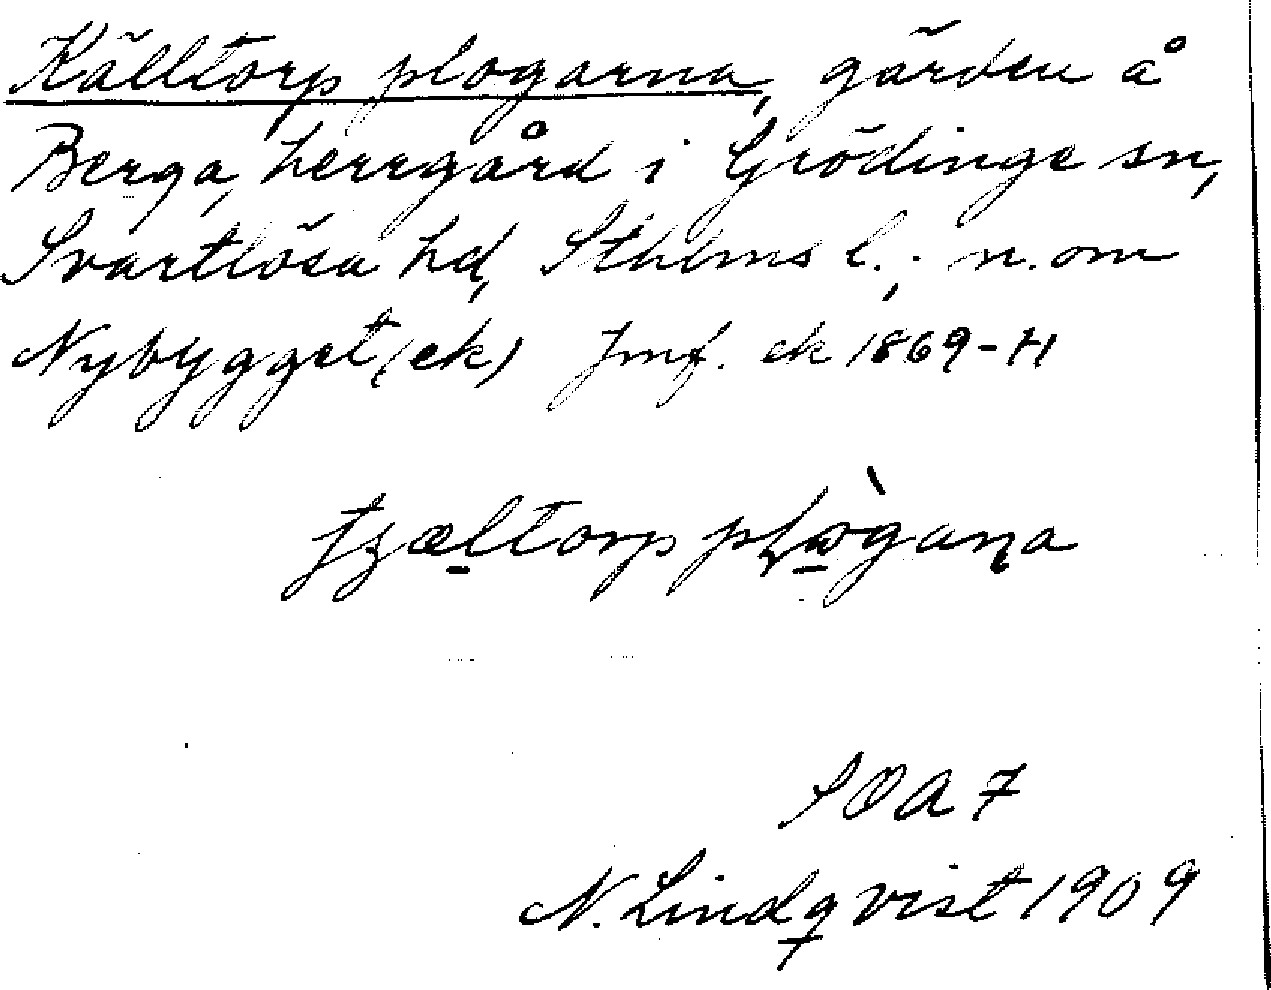 Källtorp plogarna, gärden å
Berga, herrgård i Grödinge sn,
Svartlösa hd, Sthlms l.; n. om
Nybygget (ek) Jmf. ek 1869-71
SOA 7
N. Lindqvist 1909